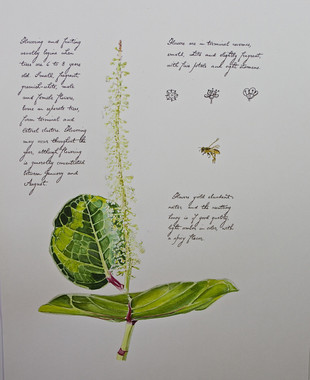 Flowering and fruiting
usually begins when
trees are 6 to 8 years
old. Small, fragrant
greenish-white, male
and female flowers,
borne on separate trees,
form terminal and
lateral clusters. Flowering
may occur throughout the
year, although flowering
is generally concentrated
between January and
August.
Flowers are in terminal racemes,
small, white and slightly fragrant,
with five petals and eight stamens.
Flowers yield abundant
nectar and the resulting
honey is of good quality,
light amber in color with
a spicy flavor.